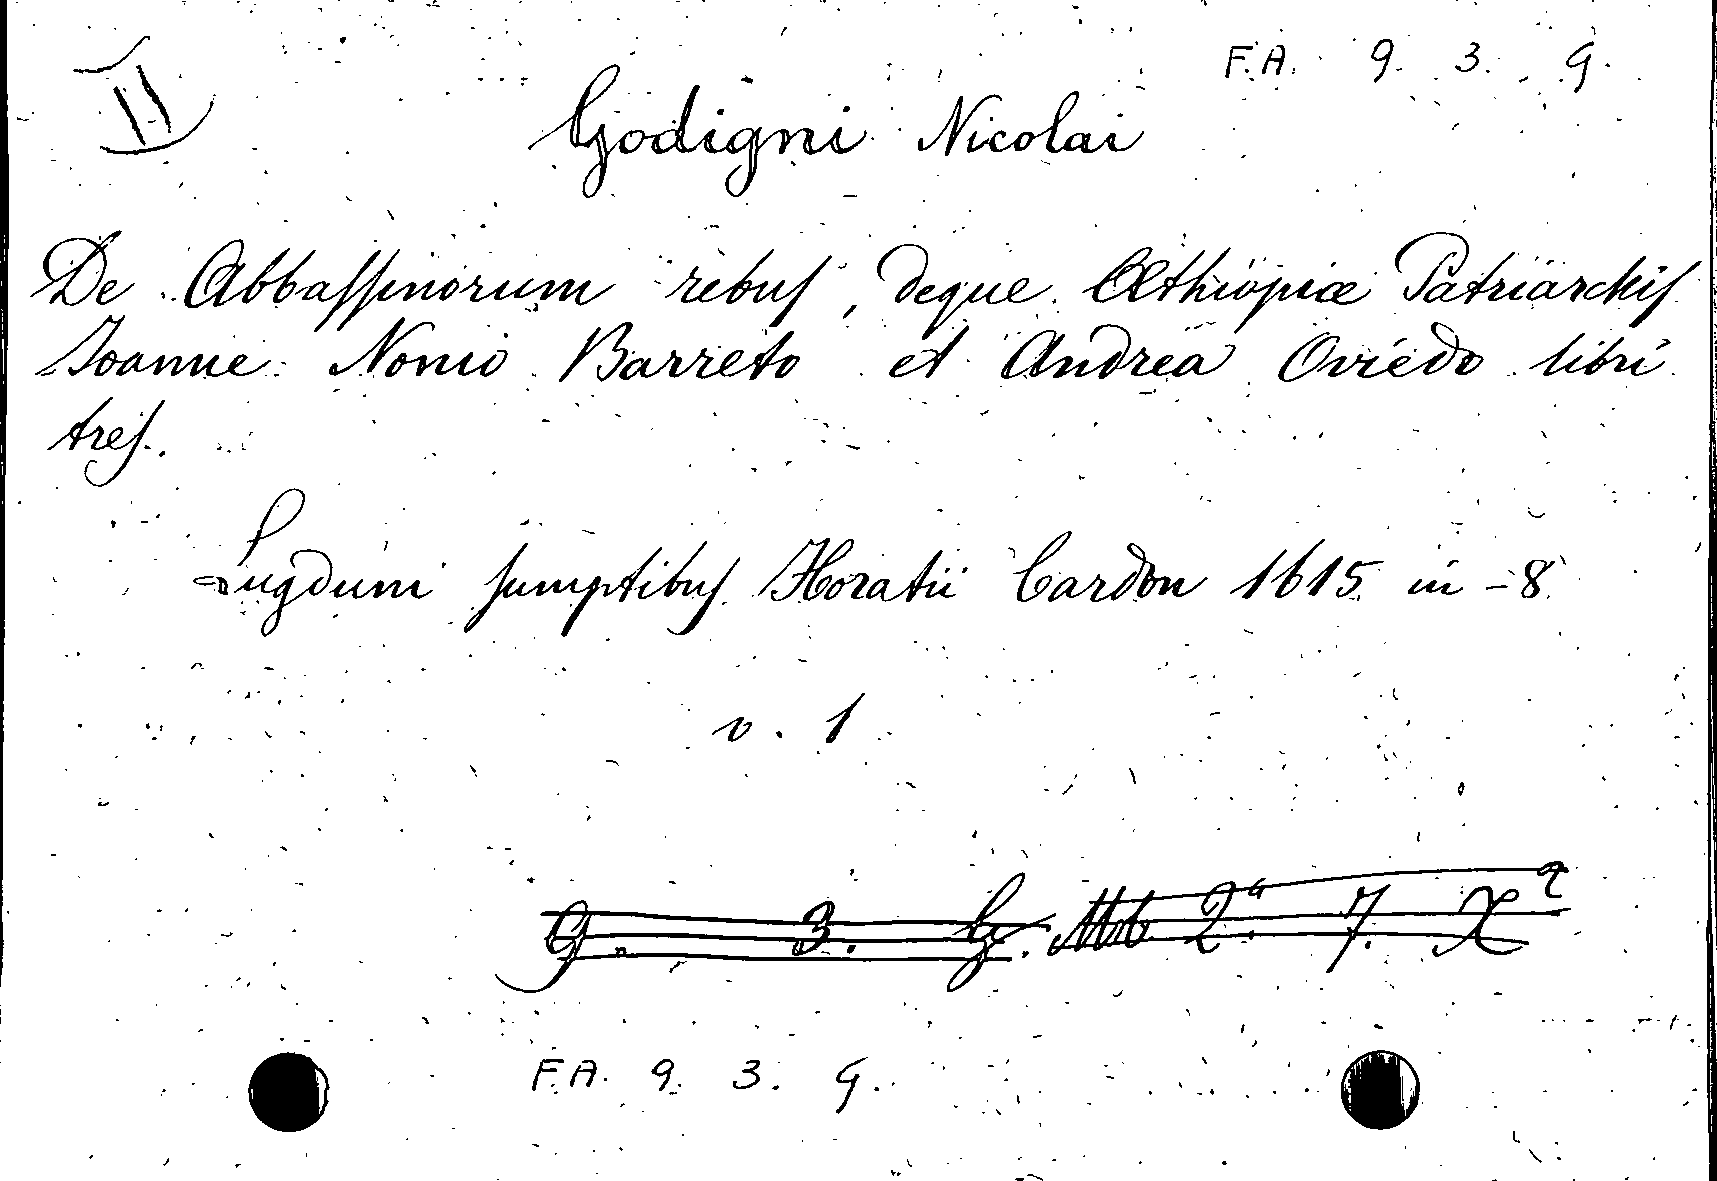 II
F.A. 9. 3. G.
Godigni Nicolai
De Abbassinorum rebus, deque Æthiopiæ Patriarchis
Joanne Nonio Barreto et Andrea Oviedo libri
tres.
Lugduni sumptibus Horatii Cardon 1615 in-8
v. 1
9. 3. G. Mb 2ª 7.
F.A. 9. 3. G.